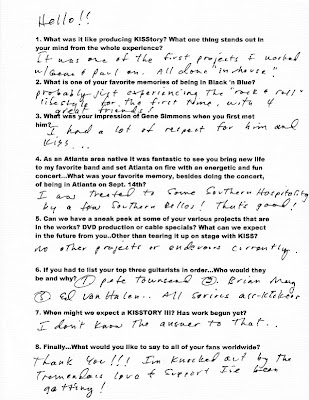 Hello!!
1. What was it like producing KISStory? What one thing stands out in
your mind from the whole experience?
It was one of the first projects I worked
w/Gene & Paul on. All done "in house".
2. What is one of your favorite memories of being in Black 'n Blue?
probably just experiencing the "rock & roll"
lifestyle for the first time, with 4
great friends!
3. What was your impression of Gene Simmons when you first met
him?...
I had a lot of respect for him and
Kiss...
4. As an Atlanta area native it was fantastic to see you bring new life
to my favorite band and set Atlanta on fire with an energetic and fun
concert...What was your favorite memory, besides doing the concert,
of being in Atlanta on Sept. 14th?
I was treated to some Southern Hospitality
by a few Southern Belles! Thats good!
5. Can we have a sneak peek at some of your various projects that are
in the works? DVD production or cable specials? What can we expect
in the future from you..Other than tearing it up on stage with KISS?
No other projects or endevors currently.
6. If you had to list your top three guitarists in order...Who would they
be and why? ① pete townsend ②. Brian May
③ Ed Van Halen.. All serious ass-kickers
7. When might we expect a KISSTORY III? Has work begun yet?
I don't know the answer to that..
8. Finally...What would you like to say to all of your fans worldwide?
Thank You!!! I'm knocked out by the
Tremendous love & support I've been
getting!